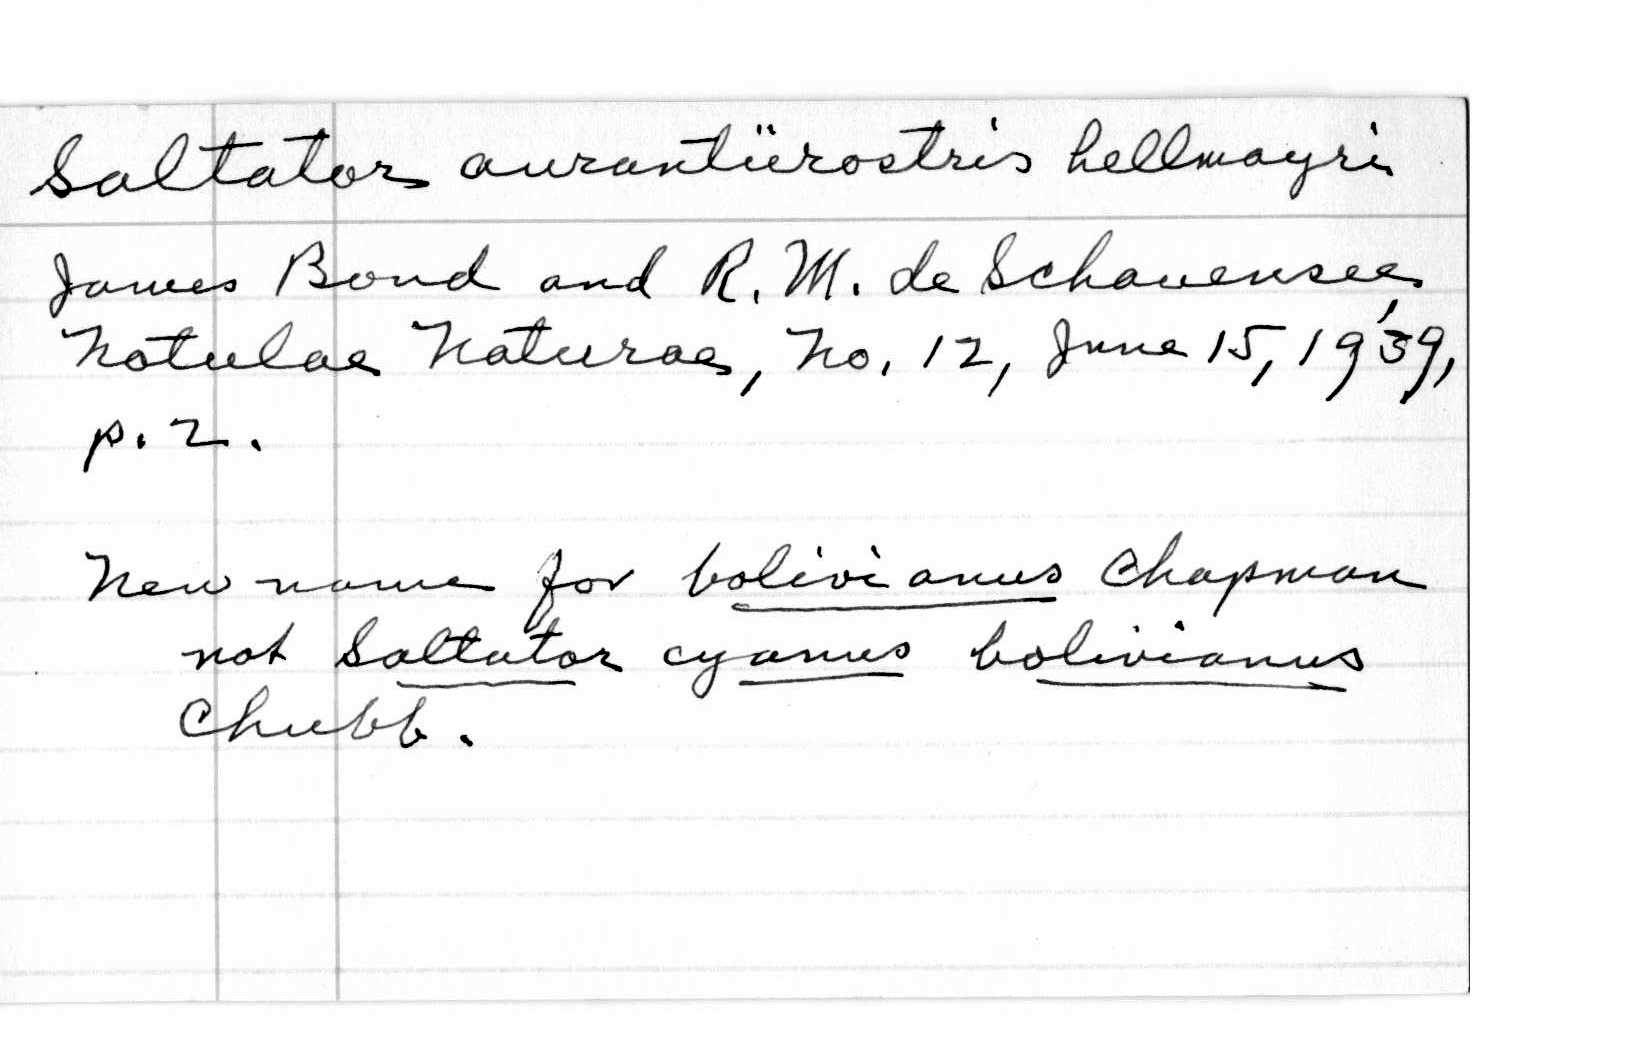 Saltator aurantiirostris hellmayri
James Bond and R. M. de Schauensee,
Notulae Naturae, No. 12, June 15, 1939,
p. 2.
New name for bolivianus Chapman
not Saltator cyanus bolivianus
Chubb.